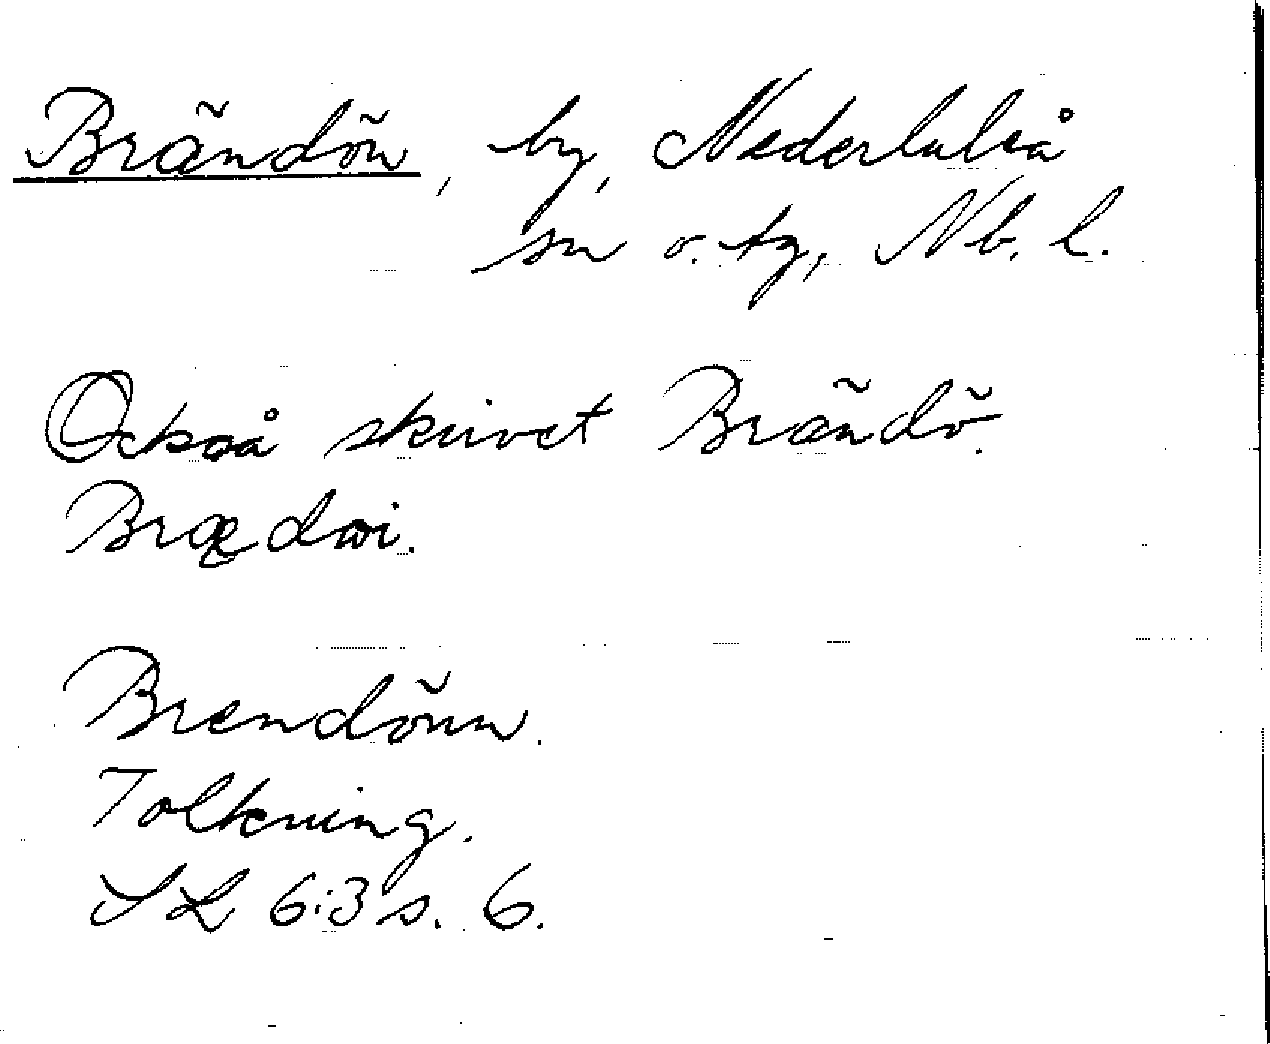 Brändön, by, Nederluleå
sn o. tg, Nb. l.
Också skrivet Brändö.
Brędöi.
Brendönn.
Tolkning.
SL 6:3 s. 6.